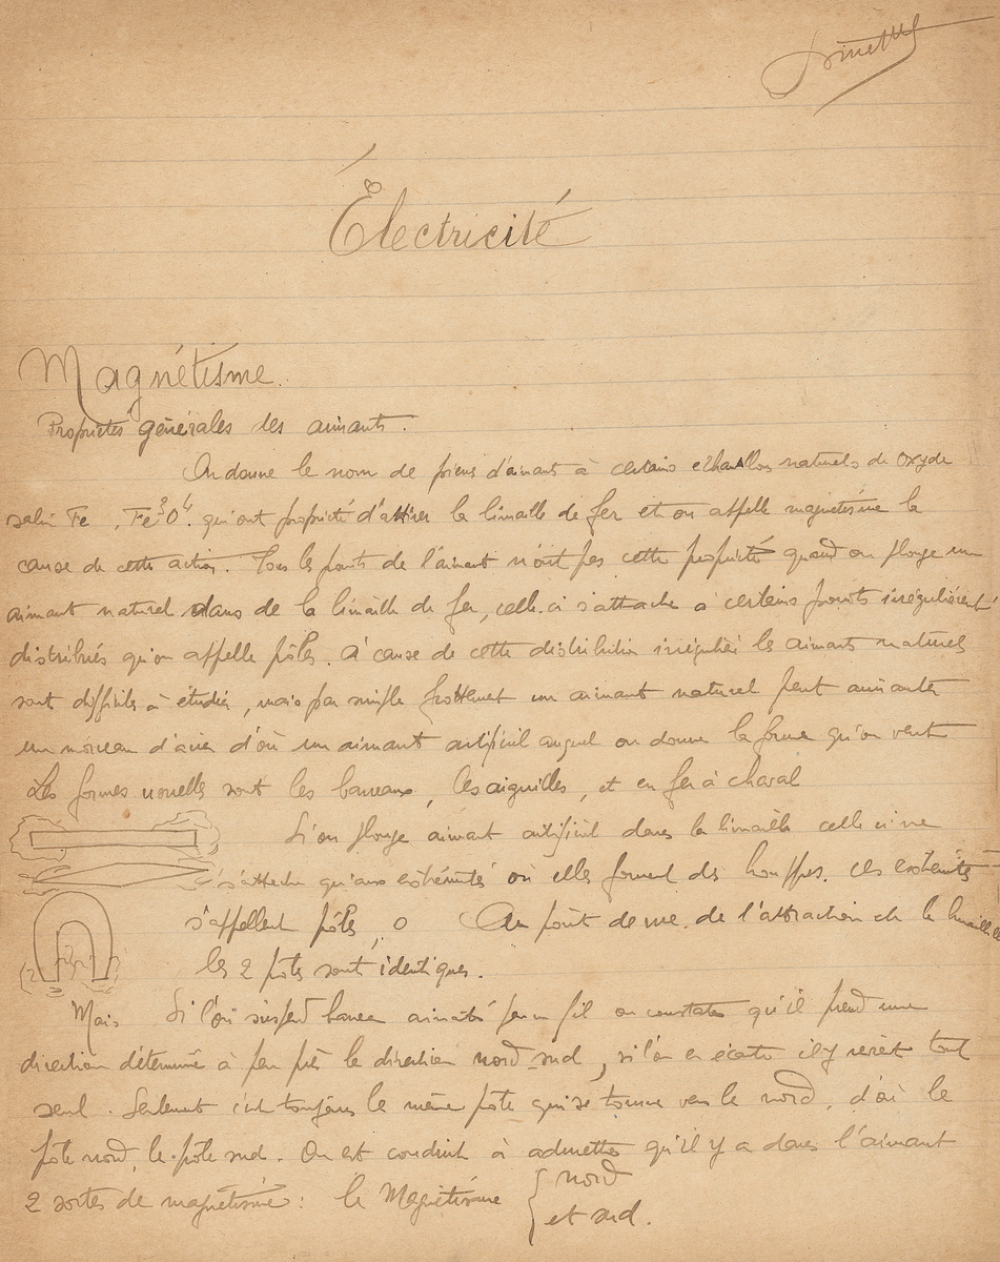 Électricité
Magnétisme.
Propriétés générales des aimants.
On donne le nom de pierre d'aimant à certains échantillons naturels de oxyde
salin Fe, Fe3O4. qui ont propriété d'attirer la limaille de fer et on appelle magnétisme la
cause de cette action. Tous les points de l'aimant n'ont pas cette propriété quand on plonge un
aimant naturel dans de la limaille de fer, celle-ci s'attache à certains points irrégulièrent
distribués qu'on appelle pôles. à cause de cette distribution irrégulière les aimants naturels
sont difficiles à étudier, mais par simple frottement un aimant naturel peut aimanter
un morceau d'acier d'où un aimant artificiel auquel on donne la forme qu'on veut
Les formes usuelles sont les barreaux, les aiguilles, et en fer à cheval
Si on plonge aimant artificiel dans la limaille celle ci ne
s'attache qu'aux extrémités où elles forment des houppes. ces extrémités
s'appellent pôles, Au point de vue de l'attraction de la limaille
les 2 pôles sont identiques.
Mais Si l'on suspend barreau aimanté par un fil on constate qu'il prend une
direction déterminée à peu près la direction nord-sud, si l'on en écarte il y revient tout
seul. Seulement c'est toujours le même pôle qui se tourne vers le nord, d'où le
pôle nord, le pôle sud. On est conduit à admettre qu'il y a dans l'aimant
2 sortes de magnétisme: le Magnétisme { nord
et sud.